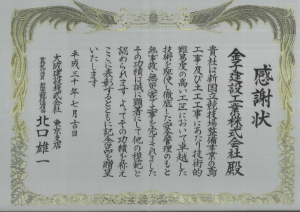 感謝状
金子建設工業株式会社殿
貴社は新国立競技場整備事業の鳶
工事及び土工工事にあたり技術的
難易度の高い工区において卓越した
技術を駆使し徹底した安全管理のもと
無事故無災害で工事を完了されました
その功績は誠に顕著にして他の模範と
認められます よってその功績を称え
ここに表彰するとともに記念品を贈呈
いたします
平成三十年七月吉日
大成建設株式会社 東京支店
北口雄一